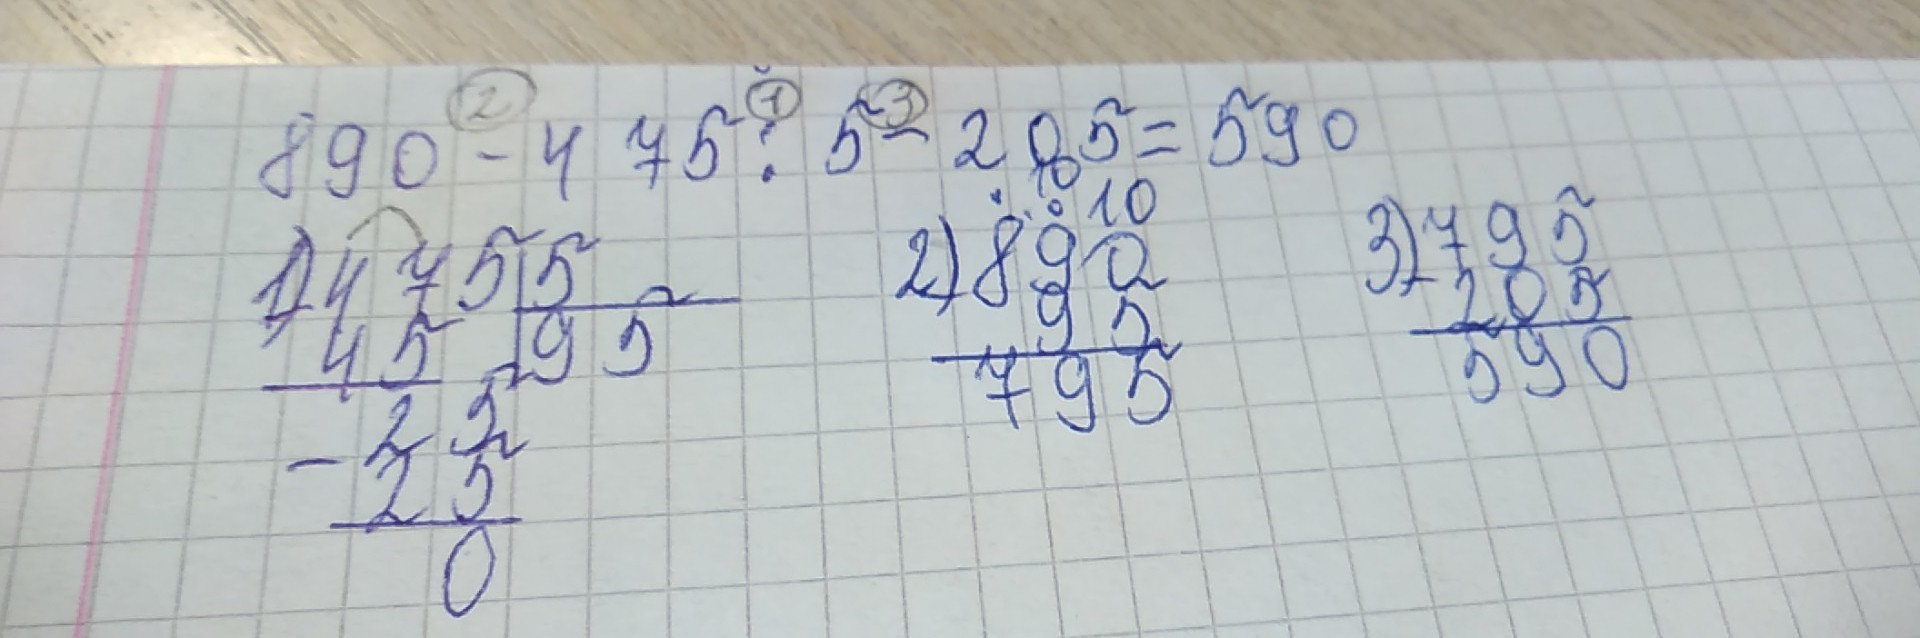 2 1 3
890 - 475 : 5 - 205 = 590
10
10
1) 475 5 2) 890 3) 795
45 95 95 - 205
25 795 590
- 25
0